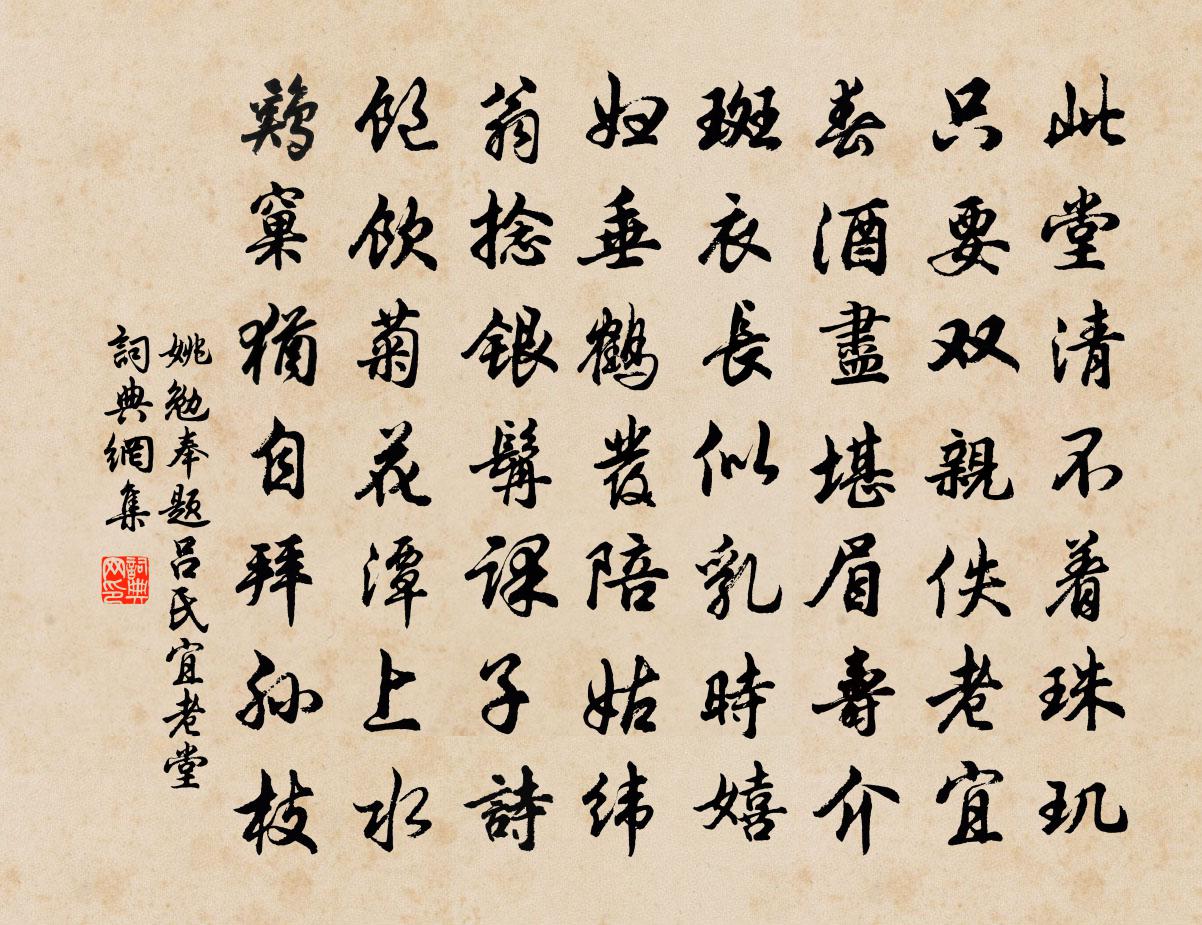 此堂清不着珠玑
只要双親佚老宜
春酒盡堪眉壽介
斑衣長似乳時嬉
妇垂鶴发陪姑纬
翁捻銀髯課子詩
飽飲菊花潭上水
鶏窠猶自拜孙枝
姚勉奉题吕氏宜老堂
詞典網集
詞典網印